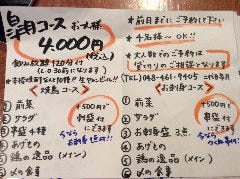 自慢コース お一人様
4,000円(税込)
飲み放題120分付
(L.O 30前になります)
★前日までにご予約して下さい
★4名様〜OK!!
★大人数でのご予約は
貸切りのご相談となります
TEL (048-461-9405
<焼鳥コース>
① 前菜
② サラダ
③ 串盛4種
④ あげもの
⑤ 鶏の逸品(メイン)
⑥ 〆の食事
+500円で
刺盛付
にできます
<お刺身コース>
① 前菜
② サラダ
③ お刺身盛3点
④ あげもの
⑤ 鶏の逸品(メイン)
⑥ 〆の食事
+500円で
串盛付
にできます